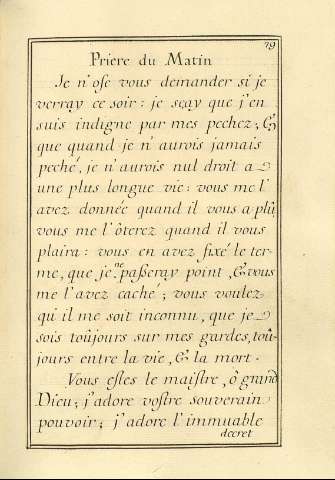 79
Priere du Matin
Je n'ose vous demander si je
verray ce soir: je sçay que j'en
suis indigne par mes pechez, &
que quand je n'aurois jamais
peché, je n'aurois nul droit a
une plus longue vie: vous me l'
avez donnée quand il vous a plû,
vous me l'ôterez quand il vous
plaira: vous en avez fixé le ter-
me, que je ne passeray point, & vous
me l'avez caché; vous voulez
qu'il me soit inconnu, que je
sois toûjours sur mes gardes, toû-
jours entre la vie, & la mort.
Vous estes le maistre, ô grand
Dieu; j'adore vostre souverain
pouvoir; j'adore l'immuable
decret